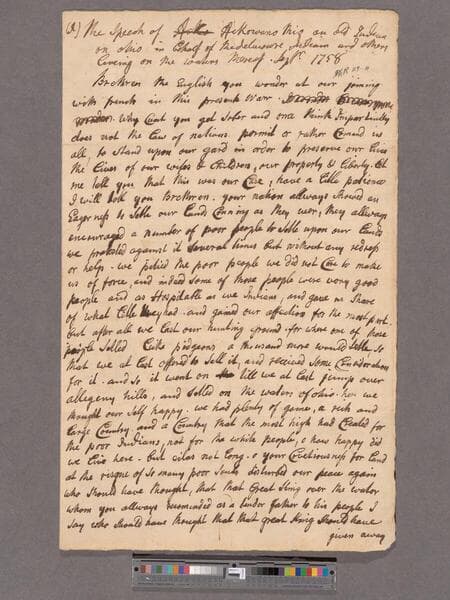 (a) The Speech of Ackowans thig an old Indian
on ohio in behalf of the delawore Indians and others
Living on the waters thereof Sept. 1758
Brethren the English you wonder at our joining
with french in this present warr.
why Cant you get Sober and once think Impartially
does not the Law of nations permit or rather Comand us
all, to Stand upon our gard in order to preserve our lives
the Lives of our wifes & Children, our property & Liberty. let
me tell you that this was our Case, have a little patience
I will tell you Brethren. your nation allways Showd an
Eagerness to Setle our Lands Cunning as they wer, they allways
encouraged a number of poor people to Setle upon our Lands
we protested against it Several times but without any redress
or help. we pitied the poor people we did not Care to make
us of force, and indeed some of those people were very good
people and as Hospitable as we Indians, and gave us Share
of what little they had. and gained our affection for the most part.
but after all we Lost our hunting ground. for where one of those
people Setled Like pidgeons a thousand more would Setle So
that we at Last offered to Sell it, and recieved Some Consideration
for it. and so it went on till we at Last jump over
allegeny hills, and Setled on the waters of ohio. here we
thought our Self happy. we had plenty of game, a rich and
Large Country and a Country that the most high had Created for
the poor Indians, not for the white people, o how happy did
we Live here. but alas not Long. o your Covetiousness for Land
at the risque of So many poor Souls disturbed our peace again
who Should have thought, that that Great King over the water
whom you allways recomended as a tender father to his people I
Say who Should have thought that that great King Should have
given away